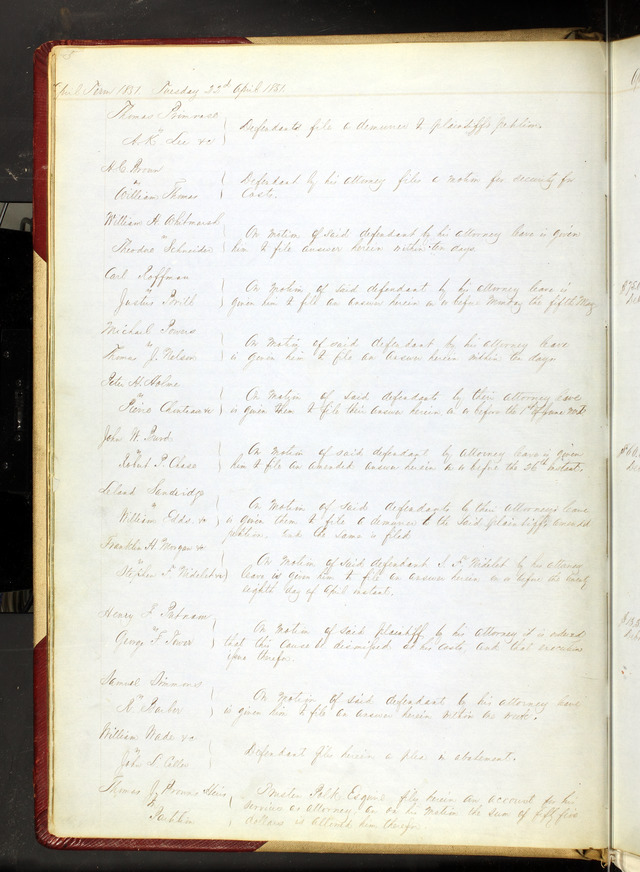 April Term 1851. Tuesday 22d April 1851.
Thomas Primrose
vs
A. R. Lee &c
Defendants file a demurrer to plaintiff's petition.
vs
William Thomas
Defendant by his attorney files a motion for security for
Costs.
William H. Whitmarsh
vs
Theodore Schneider
On motion of said defendant by his attorney leave is given
him to file answer herein within ten days
Carl Hoffman
vs
Justus
On motion of said defendant by his attorney leave is
given him to file an answer herein on or before Monday the fifth May
Michael Powers
vs
Thomas J. Nelson
On motion of said defendant by his attorney leave
is given him to file an answer herein within ten days
Peter H. Holme
vs
Pierre Chouteau
On motion of said defendants by their attorney leave
is given them to file their answer herein on or before the 1st of June next
John W. Burd
vs
Robert P. Chase
On motion of said defendant by attorney leave is given
him to file an amended answer herein on or before the 26th instant.
Leland Sandridge
vs
William Edds. &c
On motion of said defendants by their attorneys leave
is given them to file a demurrer to the said plaintiffs amended
petition. and the same is filed
Franklin H. Morgan &c
vs
Stephen F. Nidelet &c
On motion of said defendant S. F. Nidelet by his attorney
leave is given him to file an answer herein on or before the twenty
eighth day of April instant.
Henry S. Putnam
vs
George F. Tower
On motion of said plaintiff by his attorney it is ordered
that this cause is dismissed at his costs and that execution
issue therefor.
Samuel Simmons
vs
R. Barber
On motion of said defendant by his attorney leave
is given him to file an answer herein within one week.
William Wade &c
vs
John S.
Defendant files herein a plea in abatement.
Thomas J.
vs
Trusten Polk Esquire files herein an account for his
services as attorney. and on his motion the sum of fifty five
dollars is allowed him therefor.